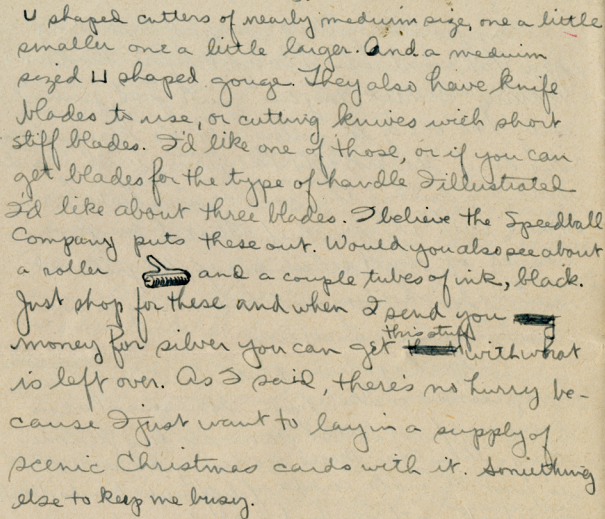 U shaped cutters of nearly medium size, one a little
smaller one a little larger. And a medium
sized U shaped gouge. They also have knife
blades to use, or cutting knives with short
stiff blades. I'd like one of those, or if you can
get blades for the type of handle I illustrated
I'd like about three blades. I believe the Speedball
Company puts these out. Would you also see about
a roller and a couple tubes of ink, black.
Just shop for these and when I send you
money for silver you can get this stuff with what
is left over. As I said, there's no hurry be-
cause I just want to lay in a supply of
scenic Christmas cards with it. Something
else to keep me busy.